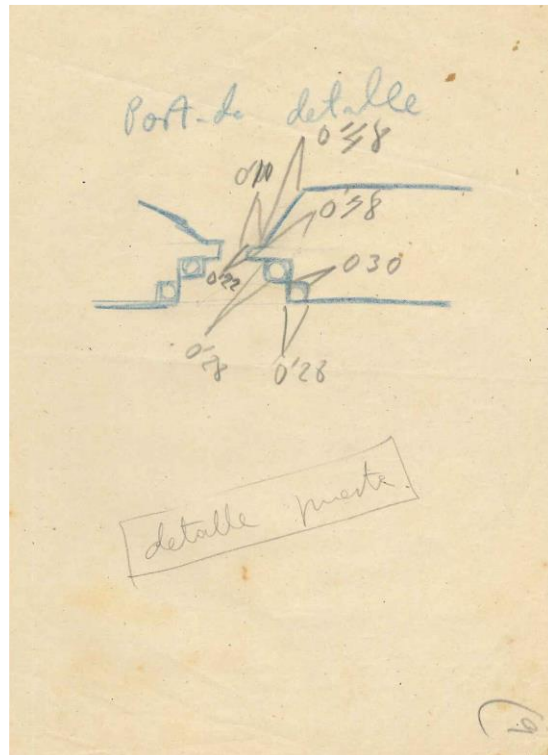 Portada detalle
0'58
0'10
0'58
0'22
0'30
0'28
0'28
detalle puerta.
9